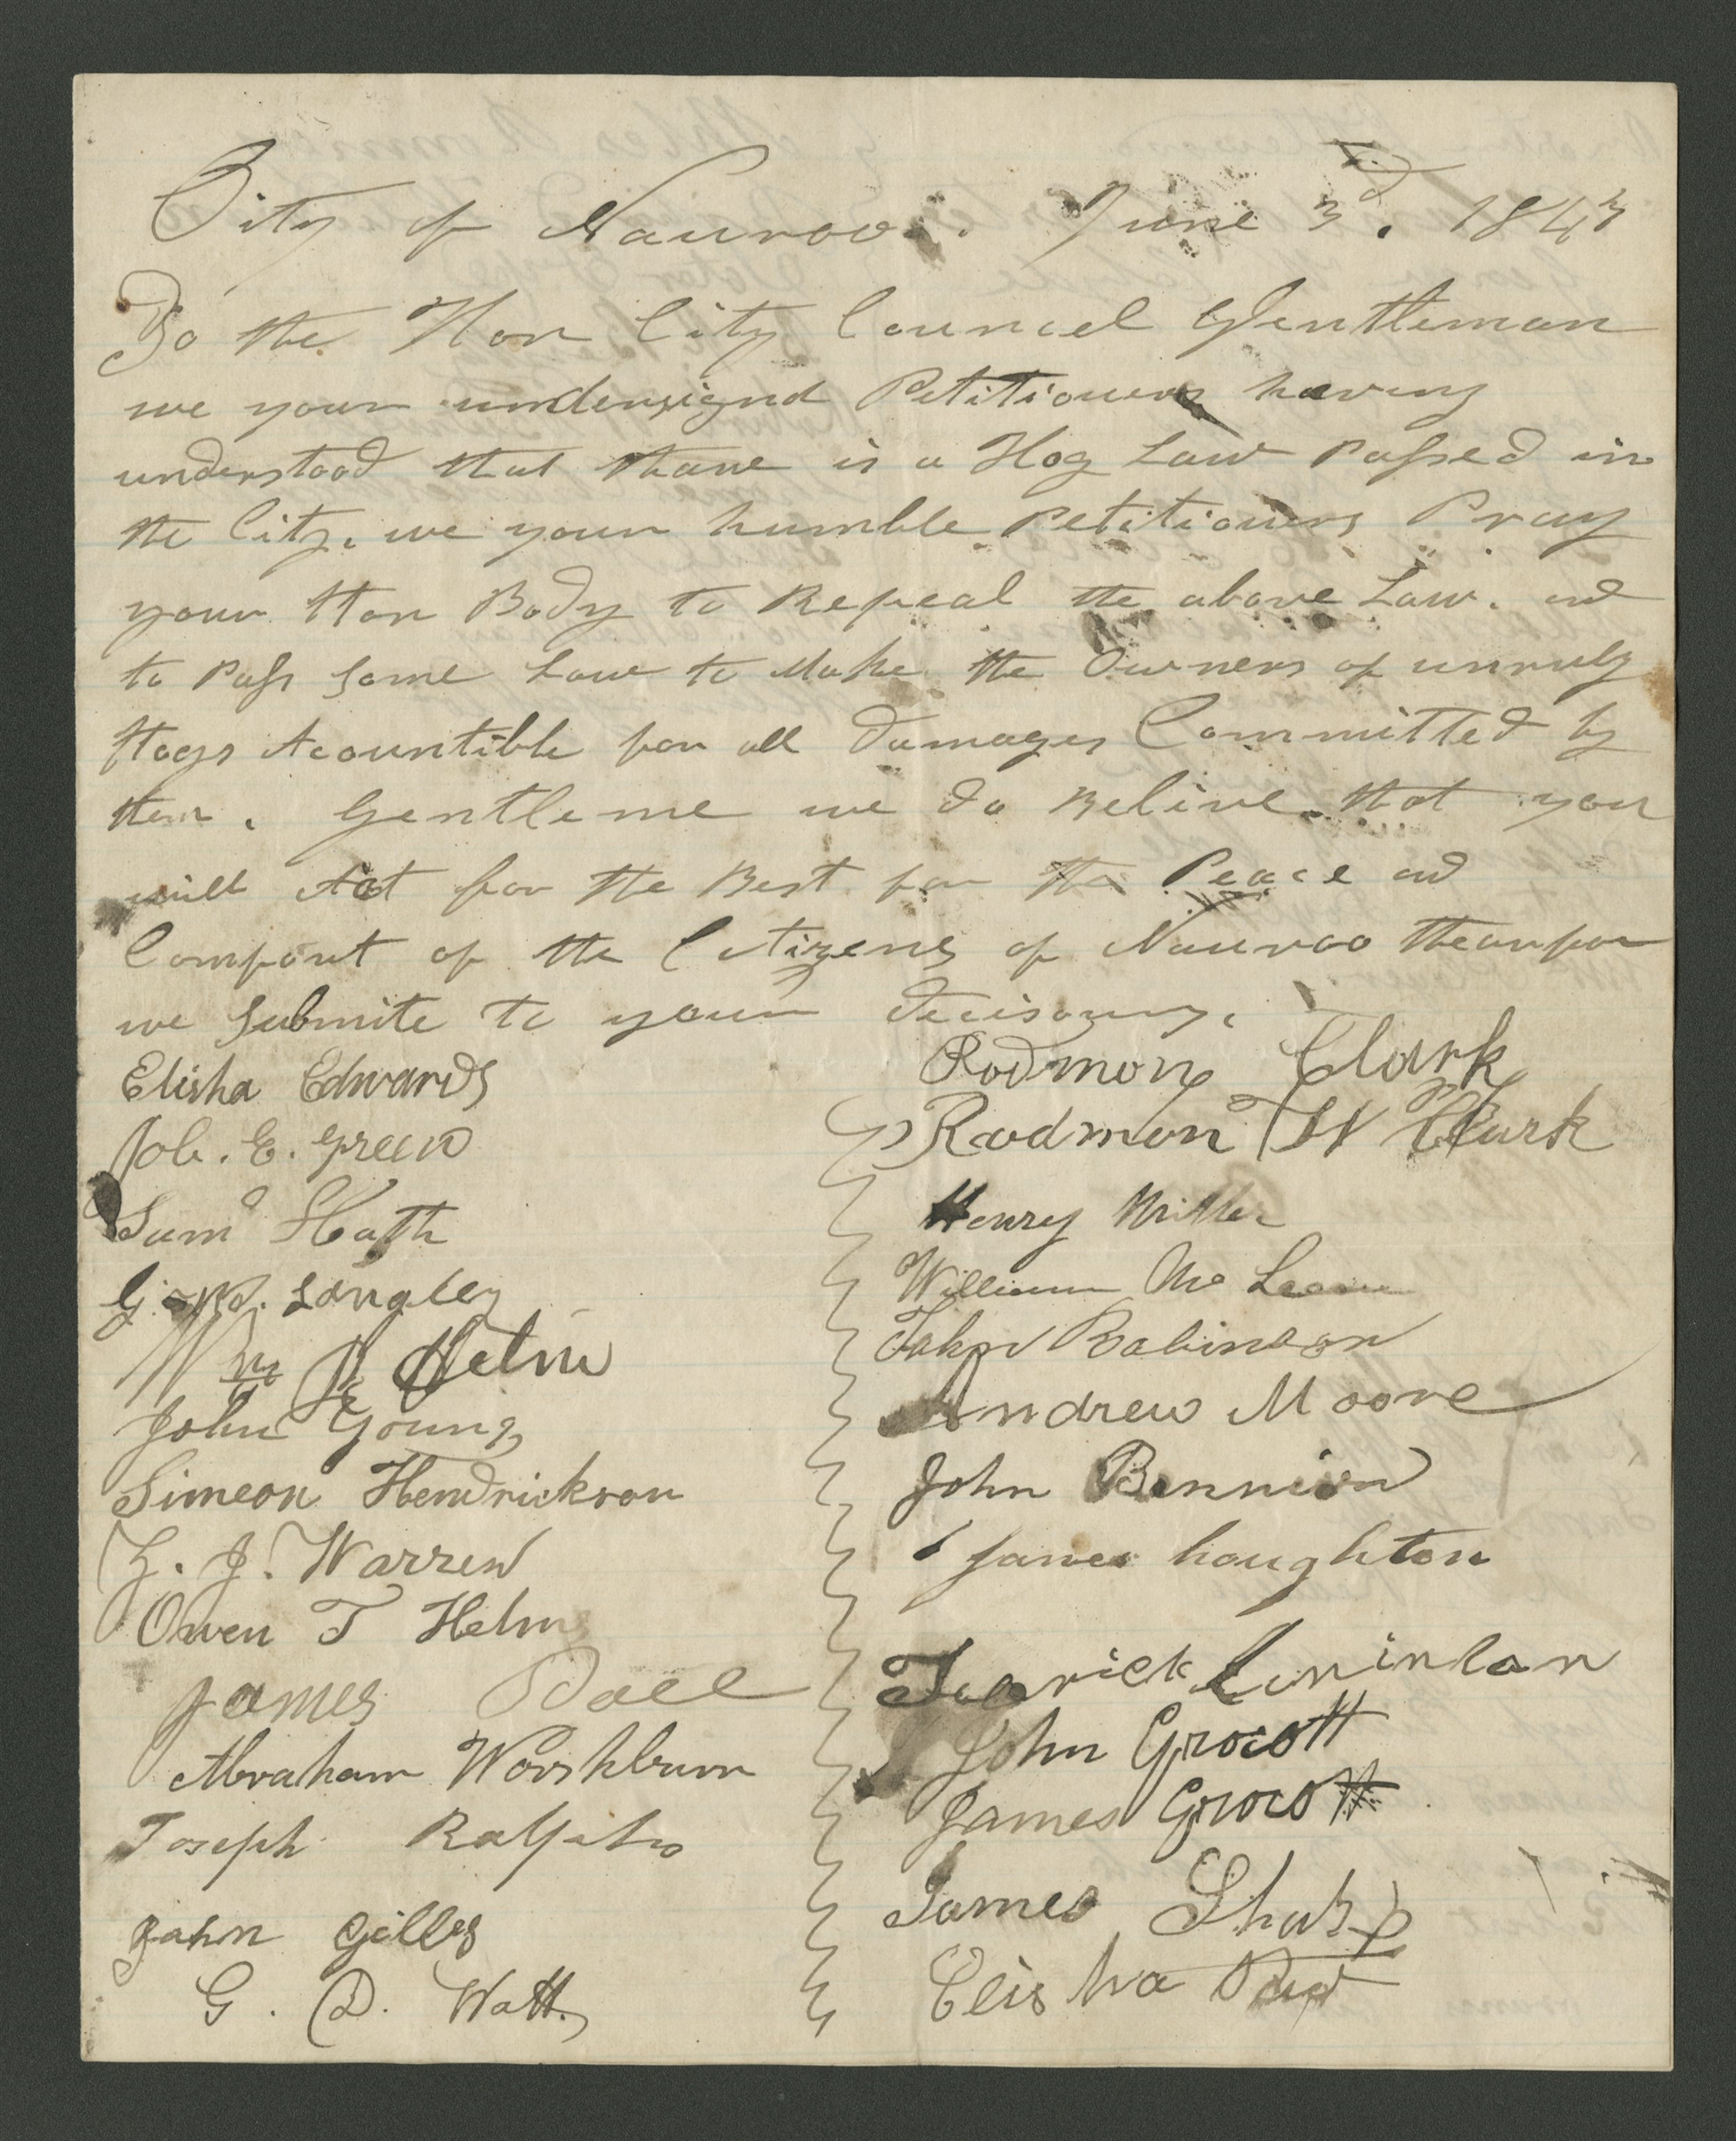 City of Nauvoo. June 3d. 1843
To the Hon City Councel Gentleman
we your undersignd Petitioners having
understood that thare is a Hog Law Passed in
the City. we your humble Petitioners Pray
your Hon Body to Repeal the above Law. and
to Pass some Law to Make the Owners of unruly
Hogs Acountible for all damages Committed by
them. Gentleme we do Belive that you
will Act for the Best for the Peace and
Comfort of the Citizens of Nauvoo thearfor
we submite to your decisons.
Elisha Edwards
Job. E. Green
Saml Heath
G. W. Langley
Wm H Helm
John Young
Simeon Hendrickson
Z. J. Warren
Owen T Helm
James Ball
Abraham Washburn
Joseph Ralphs
John Gilles
G. D. Watt
Rodmon Clark
Rodmon W Clark
Henry Miller
William Mc
John Robinson
Andrew Moore
John Bennion
James houghton
John Grocott
James Grocott
James Sharp
Elisha